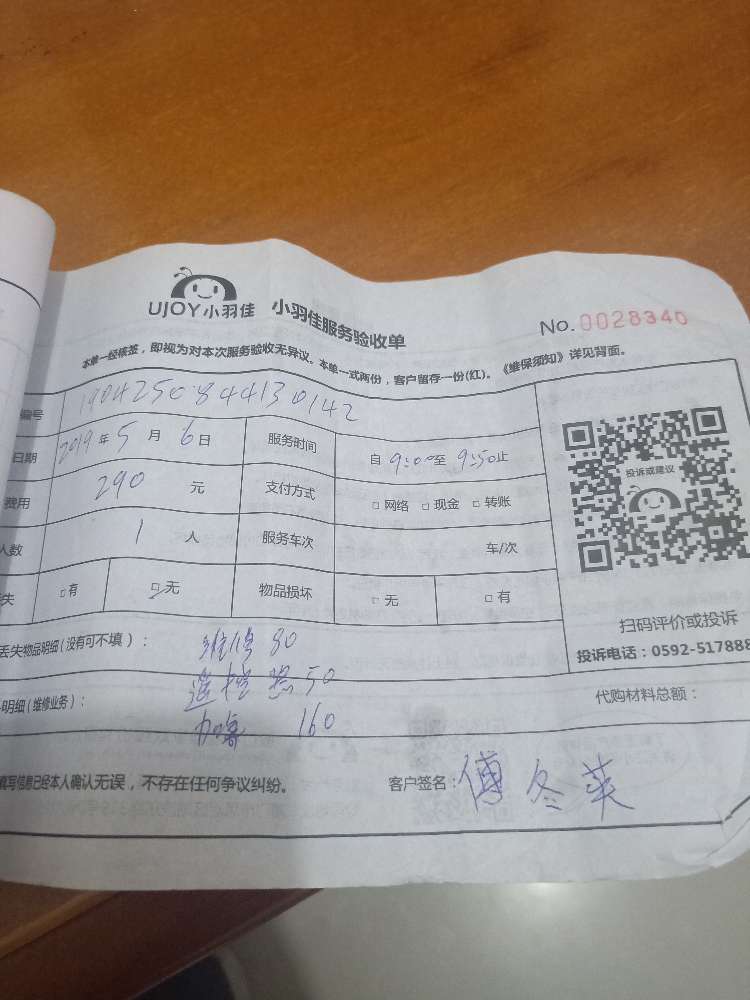 UJOY小羽佳 小羽佳服务验收单 No.0028340
本单一经核签，即视为对本次服务验收无异议。本单一式两份，客户留存一份(红)。《维保须知》详见背面。
编号 1904250844130142
日期 2019年5月6日 服务时间 自9:00至9:50止
费用 290 元 支付方式 □网络 □现金 □转账
人数 1 人 服务车次 车/次
失 □有 □无 物品损坏 □无 □有
投诉或建议
扫码评价或投诉
投诉电话：0592-517888
丢失物品明细(没有可不填)： 维修 80
遥控器 50
明细(维修业务)： 160
代购材料总额：
填写信息已经本人确认无误，不存在任何争议纠纷。 客户签名：傅冬英